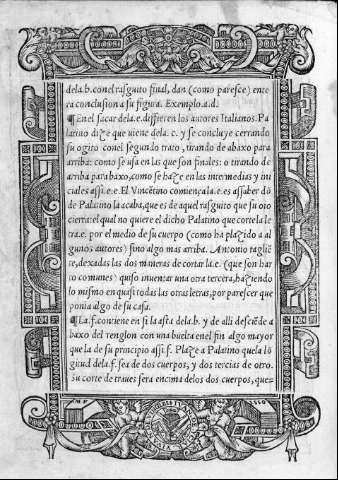 dela.b. con el rasguito final, dan (como paresce) ente
ra conclusion a su figura. Exemplo.a.d.
¶ En el sacar dela.e. diffieren los autores Italianos. Pa
latino dize que viene dela.c. y se concluye cerrando
su ogito con el segundo trato, tirando de abaxo para
arriba: como se usa en las que son finales: o tirando de
arriba para baxo, como se haze en las intermedias y ini
ciales assi.e.e. El Vincẽtino comiença la.e. es assaber dõ
de Palatino la acaba, que es de aquel rasguito que su oio
cierra: el qual no quiere el dicho Palatino que corte la le
tra.e. por el medio de su cuerpo (como ha plazido a al
gunos autores) sino algo mas arriba. Antonio taglie
te, dexadas las dos maneras de cortar la.e. (que son har
to comunes) quiso inuentar una otra tercera, haziendo
lo mismo en quasi todas las otras letras, por parescer que
ponia algo de su casa.
¶ La.f. contiene en si la asta dela.b. y de alli desciẽde a
baxo del renglon con una buelta en el fin algo mayor
que la de su principio assi.f. Plaze a Palatino que la lõ
gitud dela.f. sea de dos cuerpos, y dos tercias de otro.
Su corte de traues sera encima delos dos cuerpos, que=